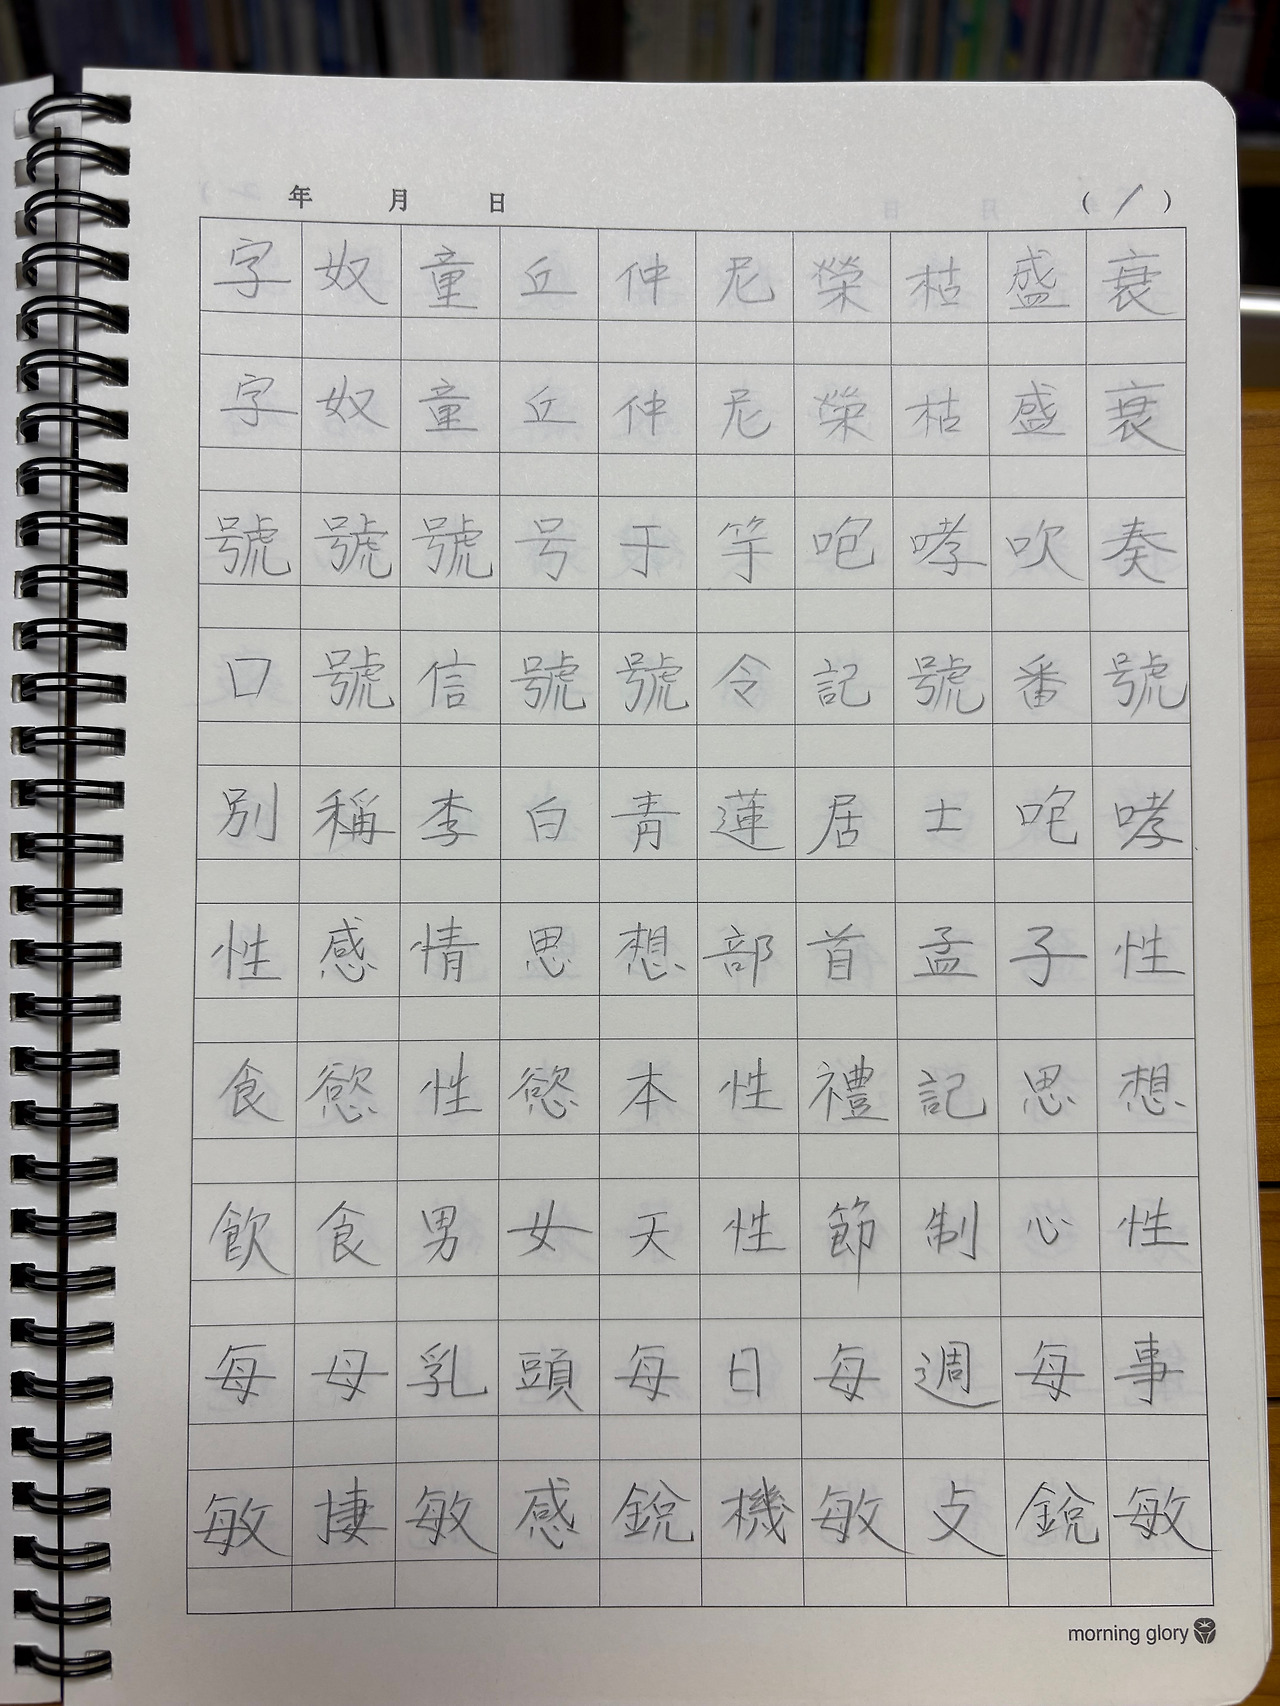 年 月 日 ( / )
字奴童丘仲尼榮枯盛衰
字奴童丘仲尼榮枯盛衰
號號號号于竽咆哮吹奏
口號信號號令記號番號
別稱李白青蓮居士咆哮
性感情思想部首孟子性
食慾性慾本性禮記思想
飮食男女天性節制心性
每母乳頭每日每週每事
敏捷敏感銳機敏攴銳敏
morning glory